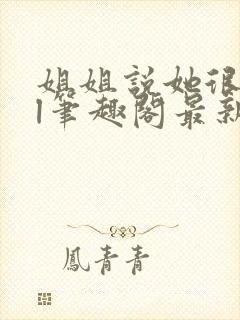 姐姐說她很
l筆趣閣最新
鳳青青